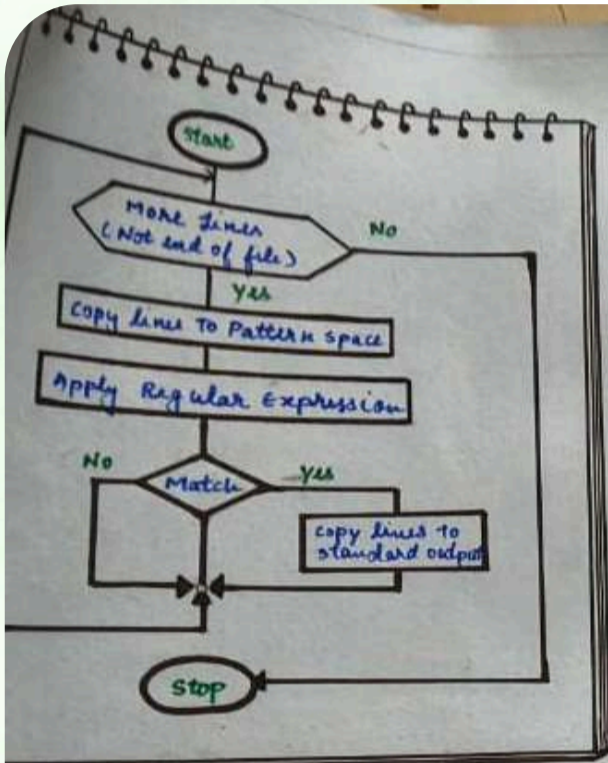 Start
More Lines
(Not end of file)
No
Yes
Copy lines To Pattern space
Apply Regular Expression
No
Match
Yes
copy lines to
standard output
Stop